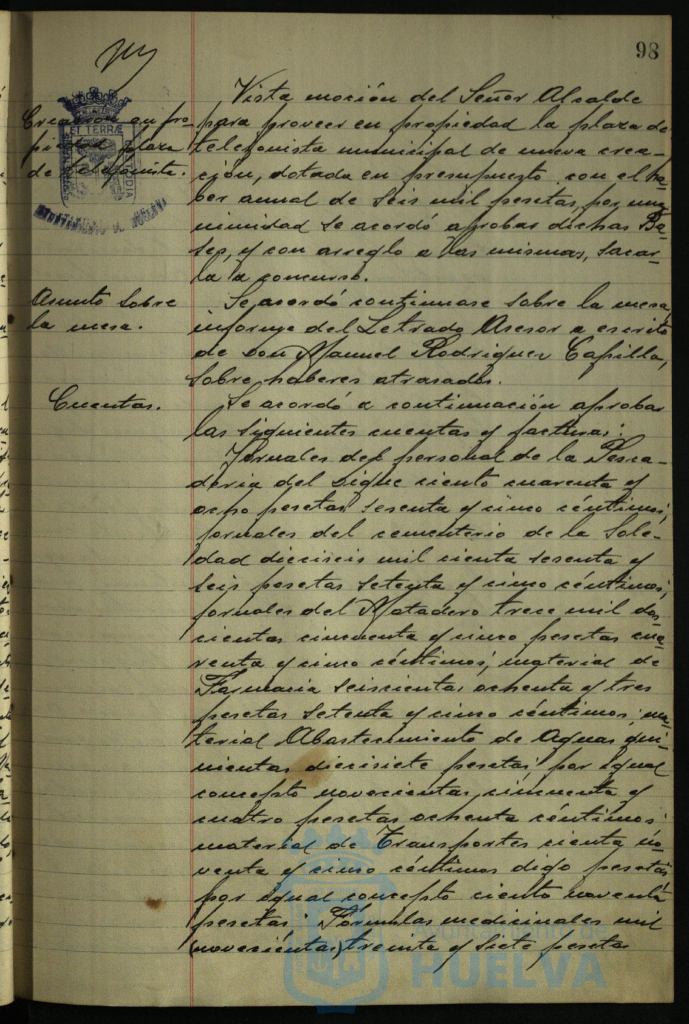 98
Vista moción del Señor Alcalde
Creación en pro-
piedad plaza
de telefonista.
para proveer en propiedad la plaza de
telefonista municipal de nueva crea-
ción, dotada en presupuesto con el ha-
ber anual de seis mil pesetas, por una-
nimidad se acordó aprobar dichas Ba-
ses, y con arreglo a las mismas, sacar-
la a concurso.
Asunto sobre
la mesa.
Se acordó continuase sobre la mesa,
informe del Letrado Asesor a escrito
de Don Manuel Rodriguez Capilla,
sobre haberes atrasados.
Cuentas.
Se acordó a continuación aprobar
las siguientes cuentas y facturas:
Jornales del personal de la Pesca-
deria del Dique ciento cuarenta y
ocho pesetas sesenta y cinco céntimos;
jornales del cementerio de la Sole-
dad dieciseis mil cienta sesenta y
seis pesetas setenta y cinco céntimos;
jornales del Matadero trece mil dos-
cientas cincuenta y cinco pesetas cua-
renta y cinco céntimos; material de
Farmacia seiscientas ochenta y tres
pesetas setenta y cinco céntimos; ma-
terial Abastecimiento de Aguas qui-
nientas diecisiete pesetas: por igual
concepto novecientas cincuenta y
cuatro pesetas ochenta céntimos:
material de Transportes cienta no-
venta y cinco céntimos digo pesetas
por igual concepto ciento noventa
pesetas: Fórmulas medicinales mil
(novecientas) treinta y siete pesetas
ET TERRÆ
CUSTODIA
AYUNTAMIENTO DE HUELVA
HUELVA